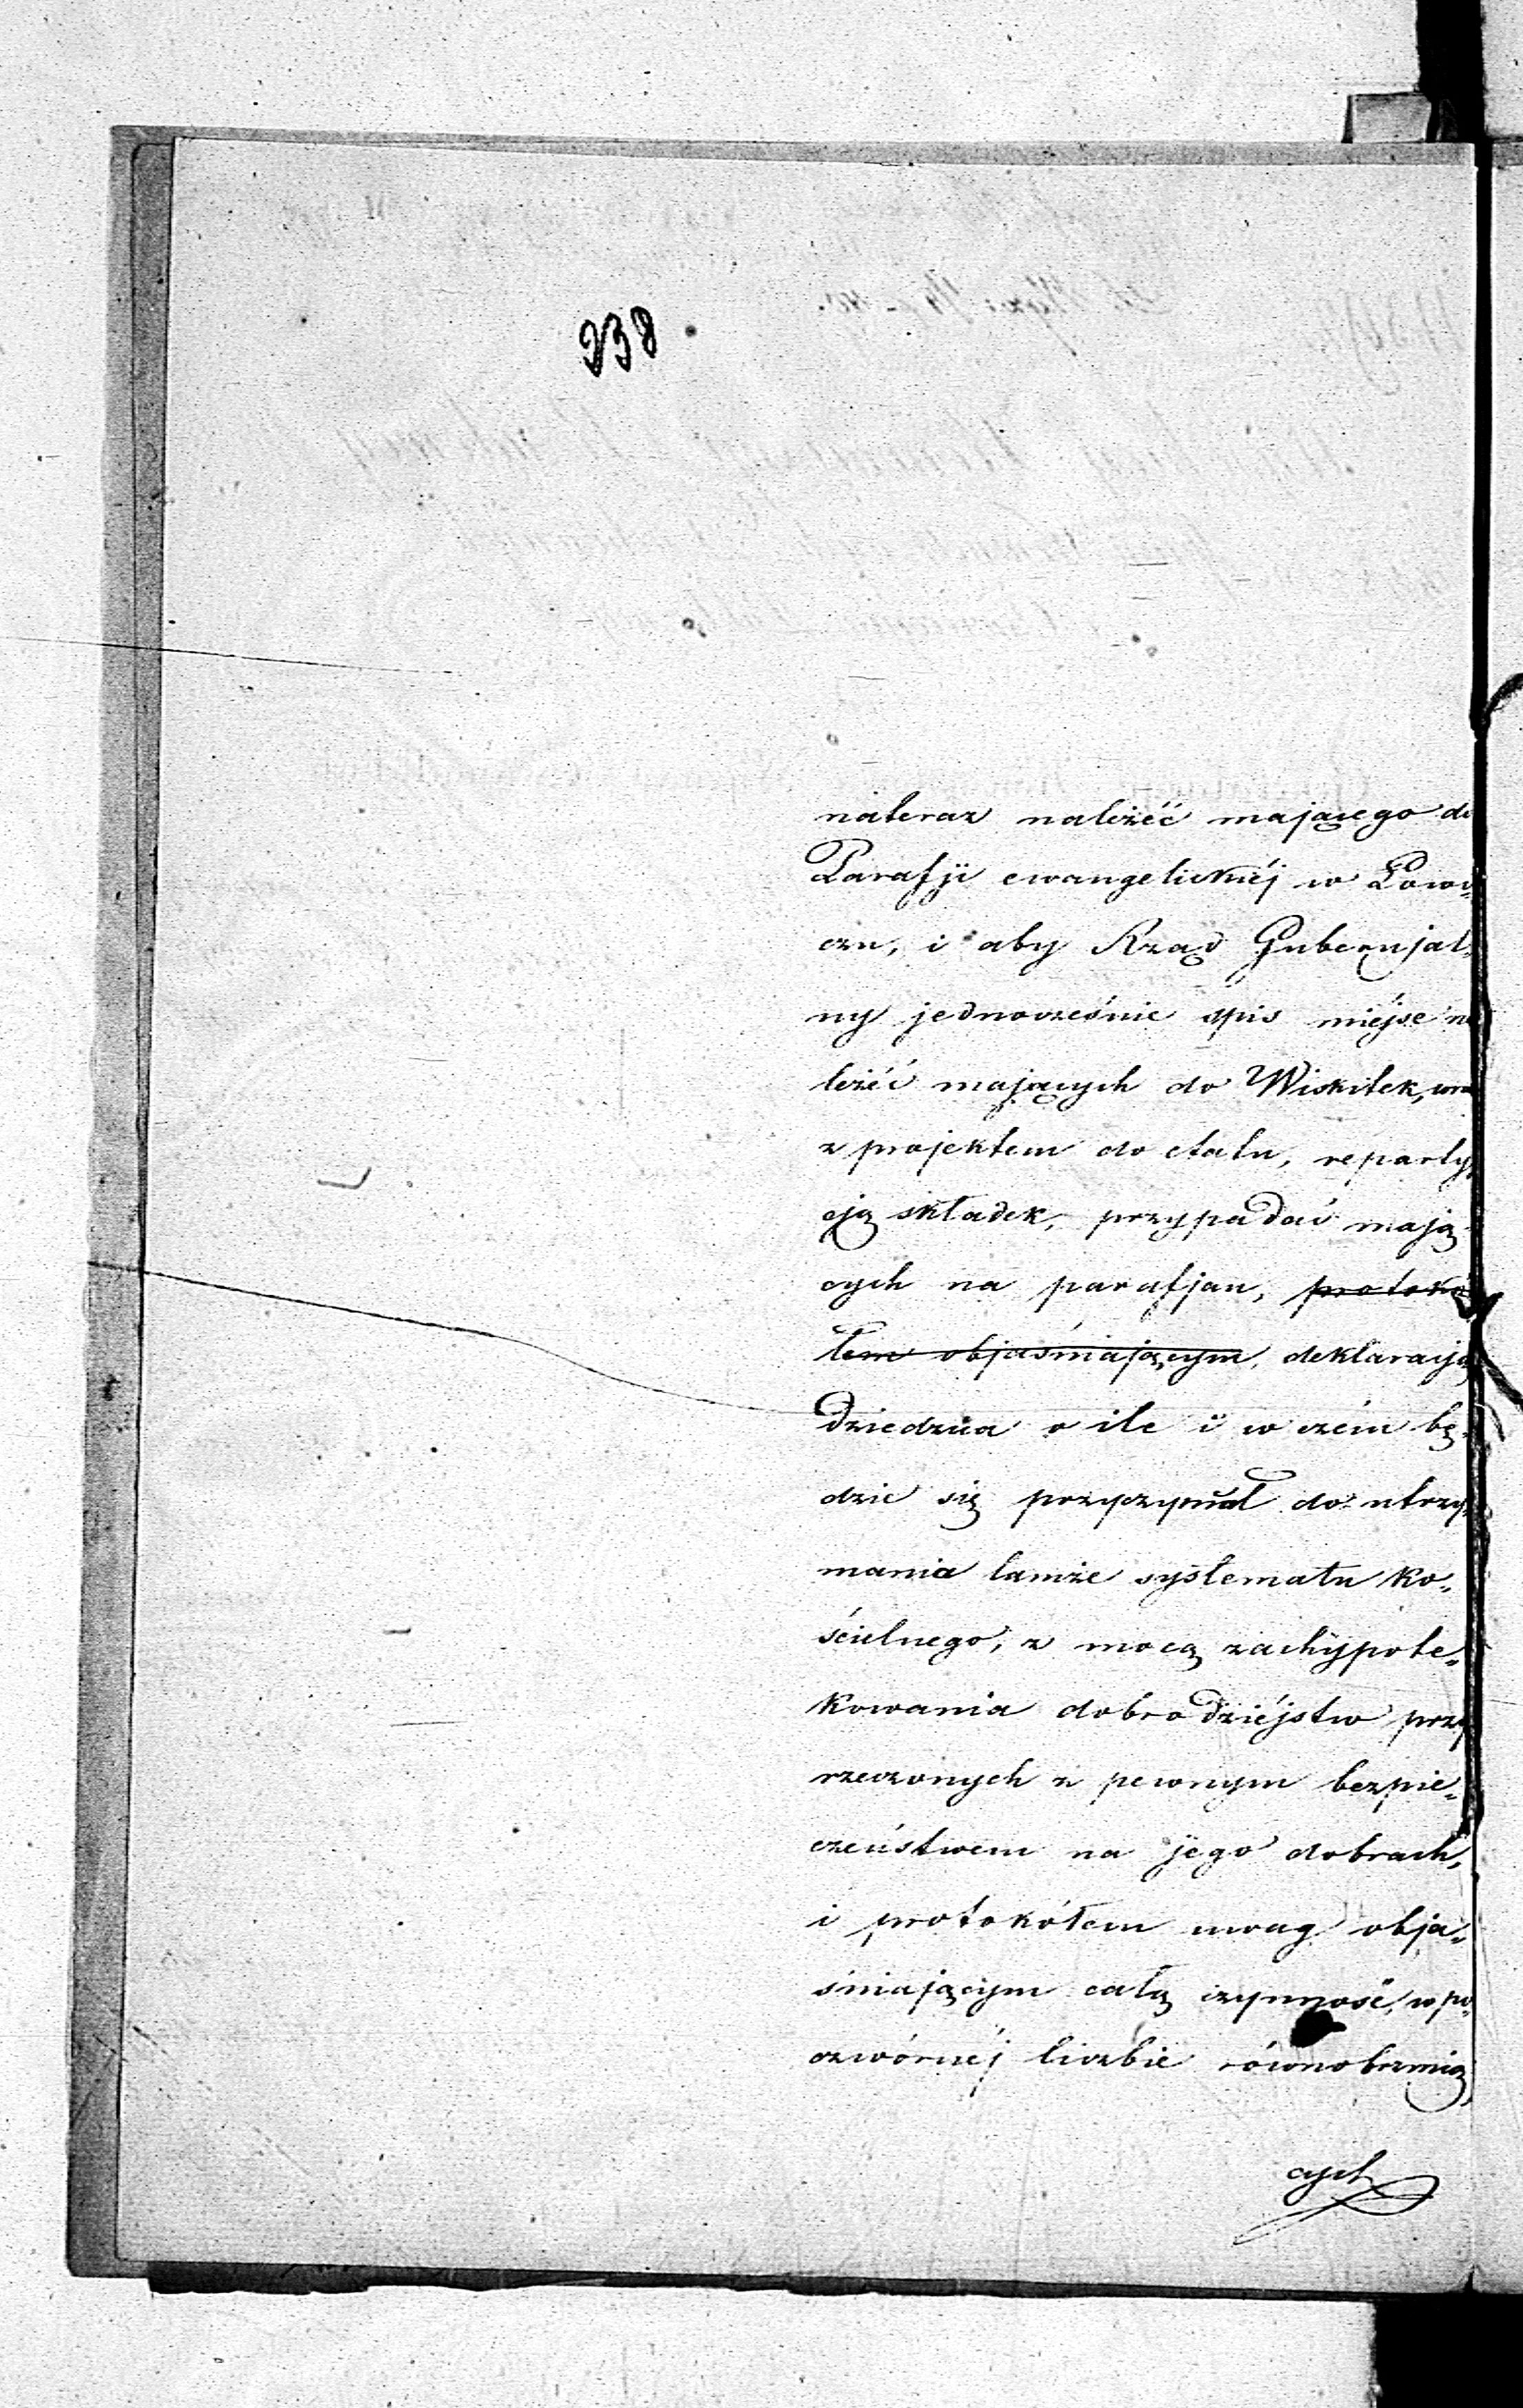 238
nateraz należéć mającego do
Parafji ewangelicknéj w Łowi-
czu, i aby Rząd Gubernjal-
ny jednocześnie spis miéjsc na
leżéć mających do Wiskitek, wraz
z projektem do etatu, reparty-
cją składek, przypadać mają-
cych na parafjan, protokó
łem objaśniającym, deklaracją
Dziedzica o ile i w czém bę-
dzie się przyczyniał do utrzy-
mania tamże systematu ko-
ścielnego, z mocą zachypote-
kowania dobrodziéjstw przy
rzeczonych z pewnym bezpie-
czeństwem na jego dobrach,
i protokółem uwag obja-
śniającym całą czynność, w po-
czwórnéj liczbie równobrzmią
cych